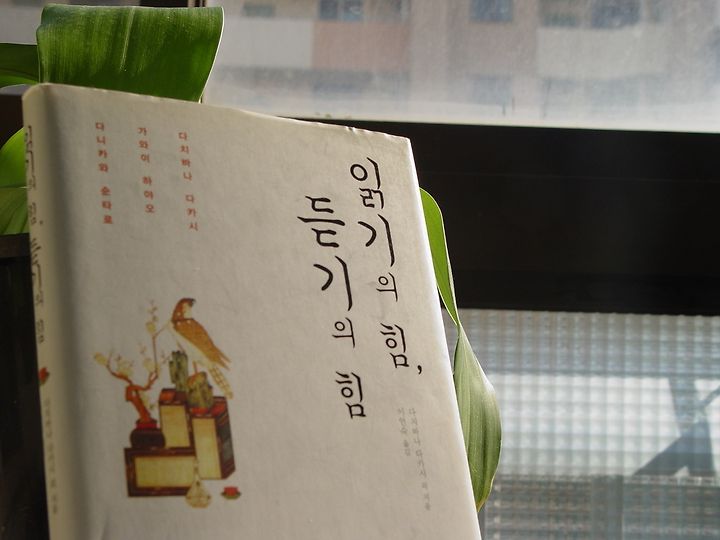 읽기의 힘,
듣기의 힘
다치바나 다카시
가와이 하야오
다니카와 순타로
다치바나 다카시 외 지음
이언숙 옮김
읽기의 힘, 듣기의 힘